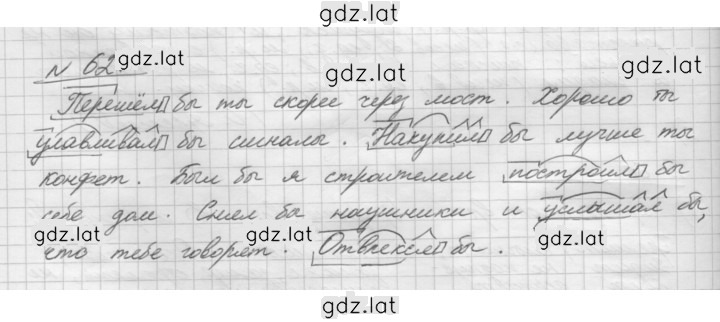 gdz.lat
№ 62. gdz.lat gdz.lat
Перешёл бы ты скорее через мост. Хорошо ты
улавливал бы сигналы. Накупил бы лучше ты
конфет. Был бы я строителем построил бы
тебе дом. Снял бы наушники и услышал бы,
gdz.lat gdz.lat gdz.lat
что тебе говорят. Отвлексл бы.
gdz.lat